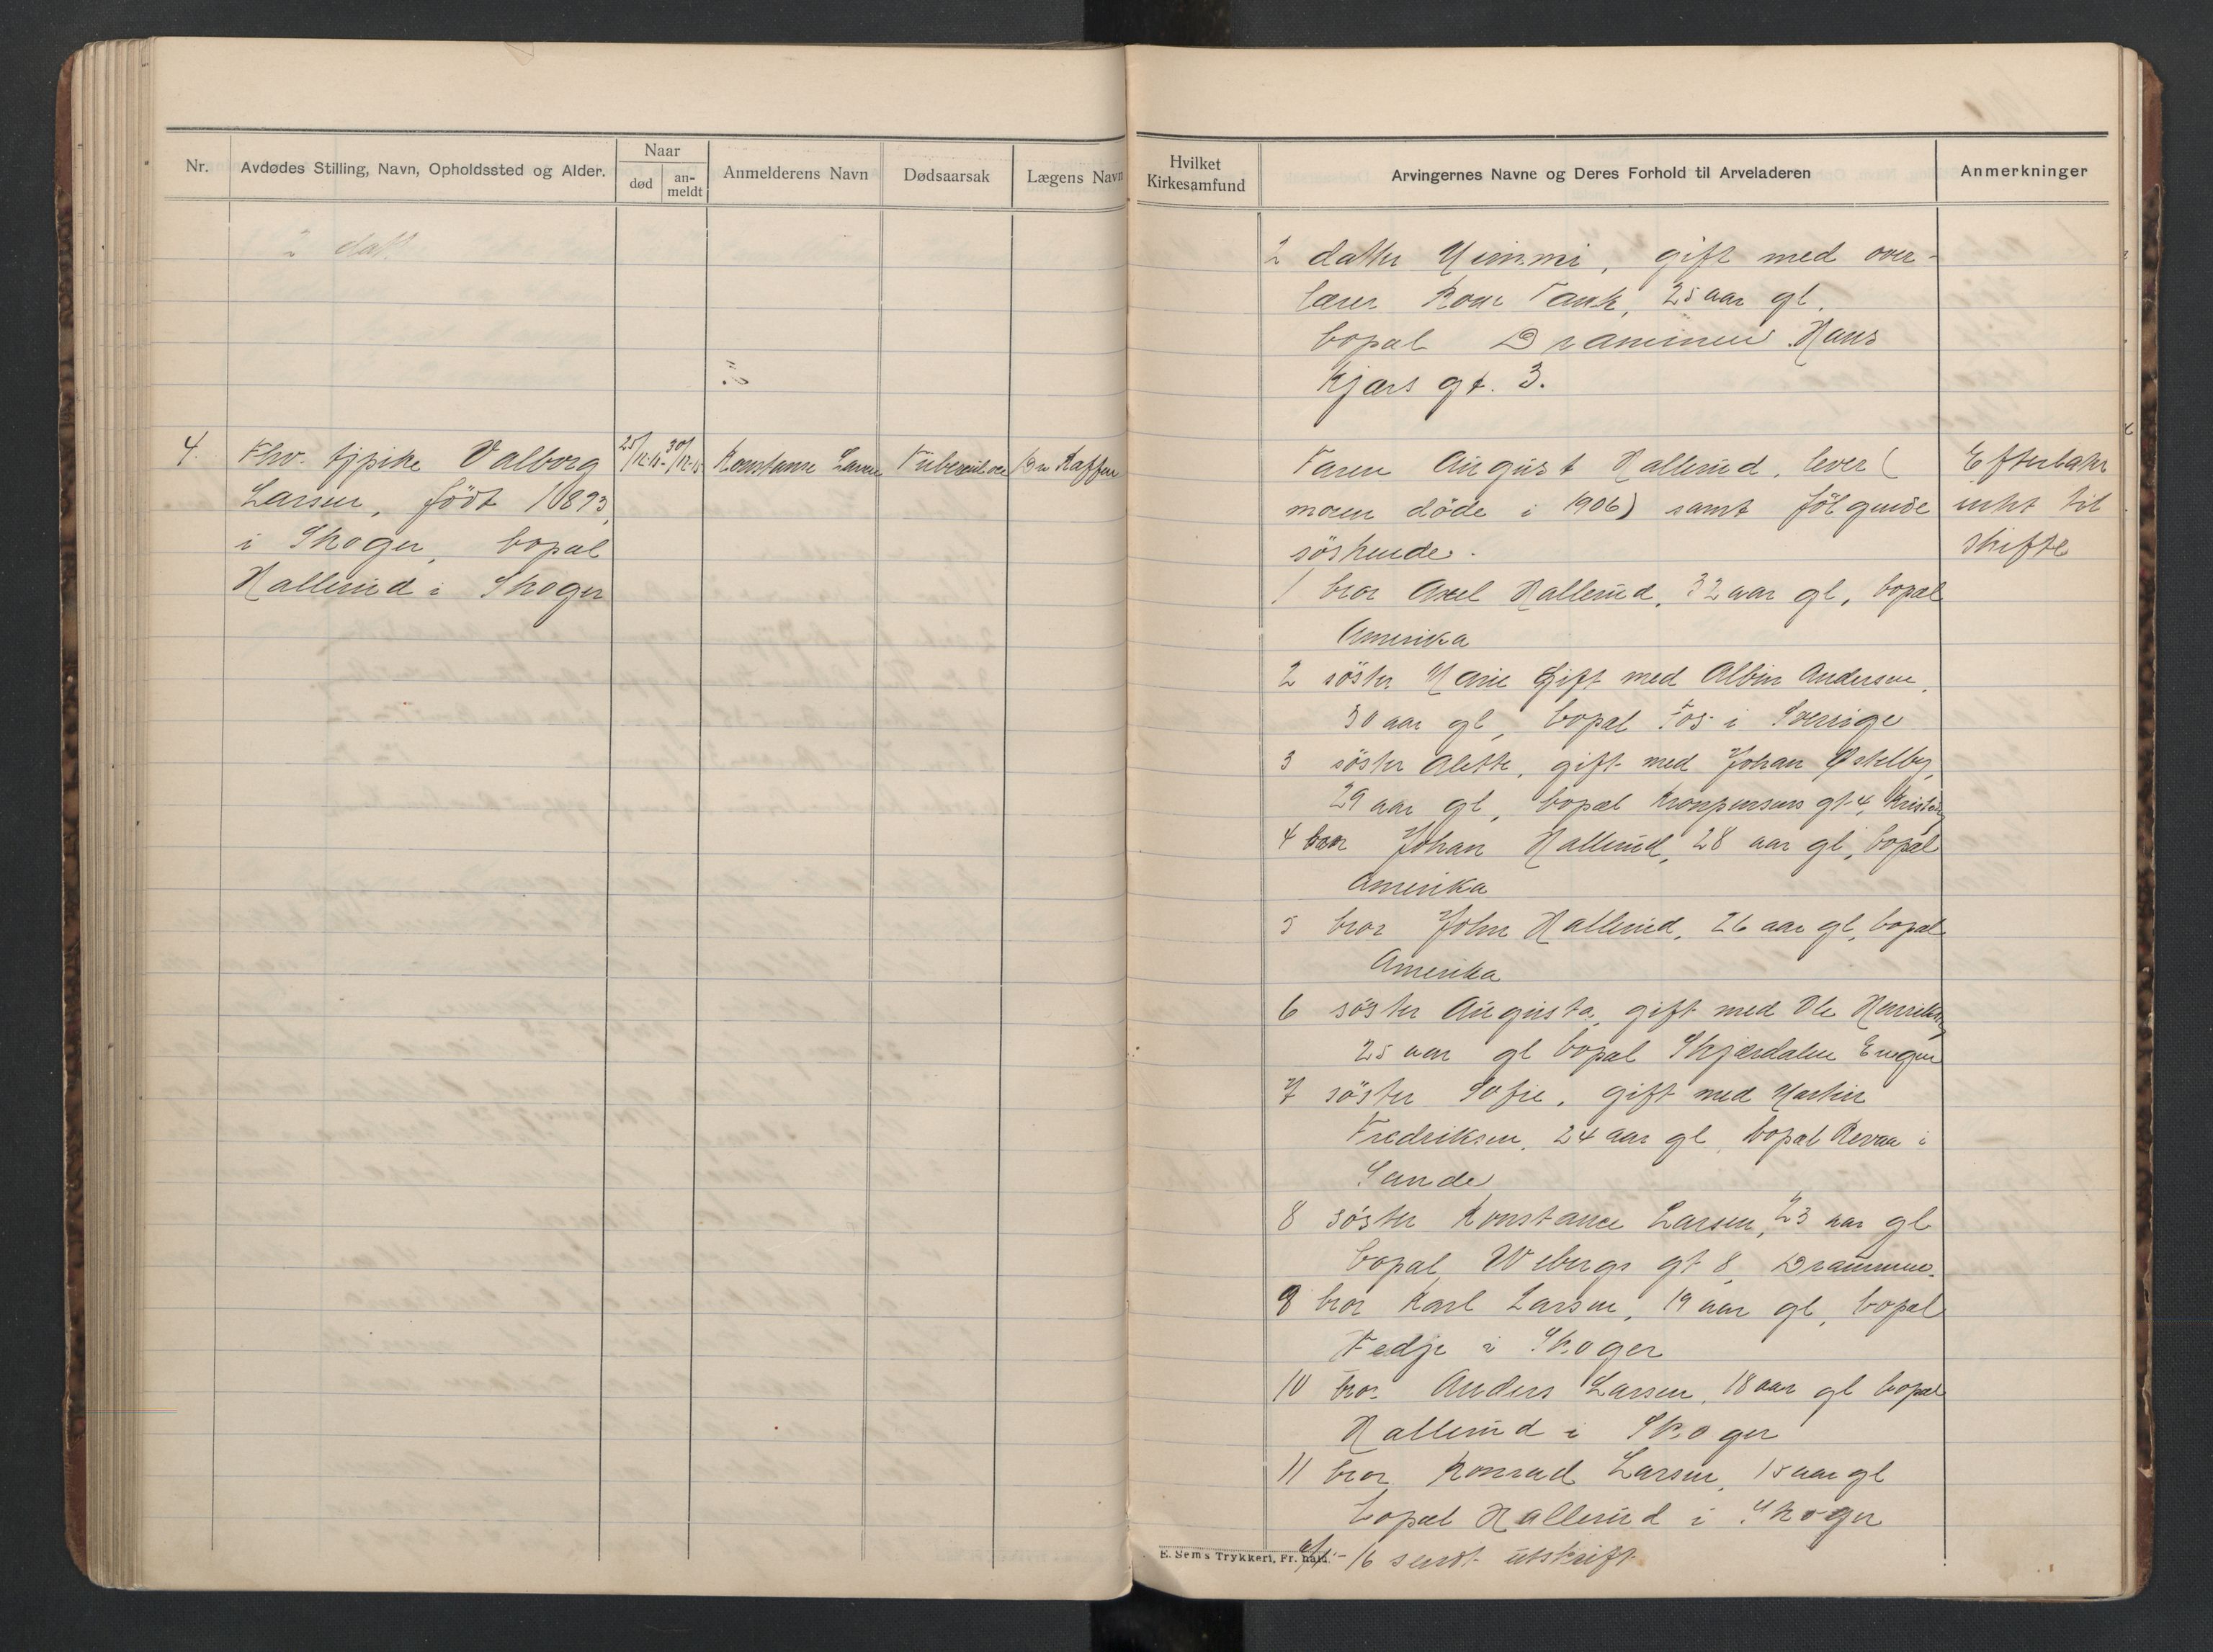 Nr.
Avdødes Stilling, Navn, Opholdssted og Alder.
Naar
død
an-
meldt
Anmelderens Navn
Dødsaarsak
Lægens Navn
2 datt
4.
Fhv. tjpike Valborg
Larsen, født 1893,
i Skoger, bopæl
Hallerud i Skoger
25/12-15-
30/12-15
Konstanse Larsen
Tuberkulose
Hvilket
Kirkesamfund
Arvingernes Navne og Deres Forhold til Arveladeren
Anmerkninger
2 datter Mimmi, gift med over-
lærer Roar Tank, 25 aar gl.
bopæl Drammen Hans
Kjærs gt. 3.
Faren August Hallerud, lever (
moren døde i 1906) samt følgende
søskende.
1 bror Axel Hallerud, 32 aar gl, bopæl
Amerika
2 søster Marie Gift med Albin Andersen,
30 aar gl, bopæl Fos i Sverige
3 søster Alette, gift med Johan Østelby,
29 aar gl, bopæl Kronprinsens gt 4, Kristiania
4 bror Johan Hallerud, 28 aar gl, bopæl
Amerika
5 bror John Hallerud, 26 aar gl, bopæl
Amerika
6 søster Augusta, gift med Ole Henriksen,
25 aar gl bopæl Skjærdalen Enger
7 søster Sofie, gift med Martin
Fredriksen, 24 aar gl, bopæl Revaa i
Sande
8 søster Konstance Larsen, 23 aar gl
bopæl Webergs gt 8, Drammen.
9 bror Karl Larsen, 19 aar gl, bopæl
Fedje i Skoger
10 bror Anders Larsen, 18 aar gl bopæl
Hallerud i Skoger
11 bror Konrad Larsen, 15 aar gl
bopæl Hallerud i Skoger
16 sendt utskrift
Efterlater
intet til
skifte
E. Sem's Trykkeri, Fr. hald.